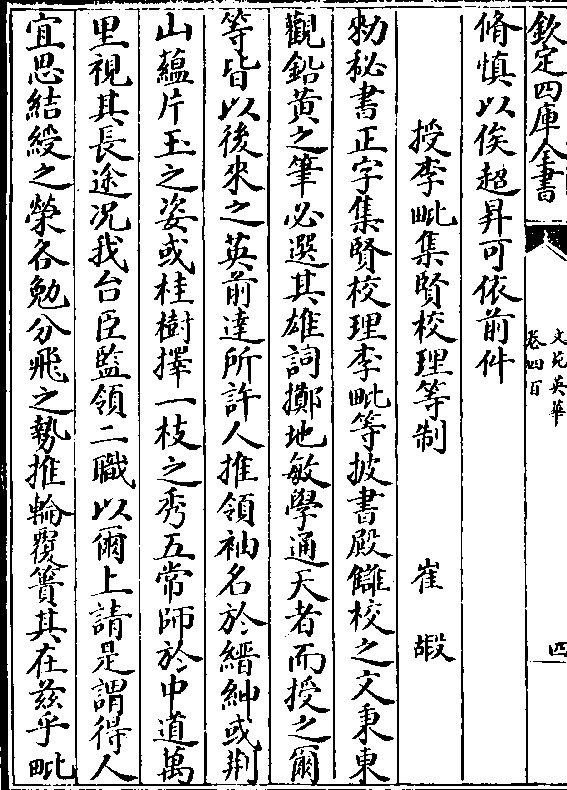 欽定四庫全書
文苑英華
卷四百
四
脩慎以俟超昇可依前件
授李毗集賢校理等制
崔嘏
勑秘書正字集賢校理李毗等披書殿讎校之文秉東
觀鉛黄之筆必選其雄詞擲地敏學通天者而授之爾
等皆以後來之英前達所許人推領袖名於縉紳或荆
山蘊片玉之姿或桂樹擇一枝之秀五常師於中道萬
里視其長途况我台臣監領二職以爾上請是謂得人
宜思結綬之榮各勉分飛之勢推輪覆簣其在兹乎毗